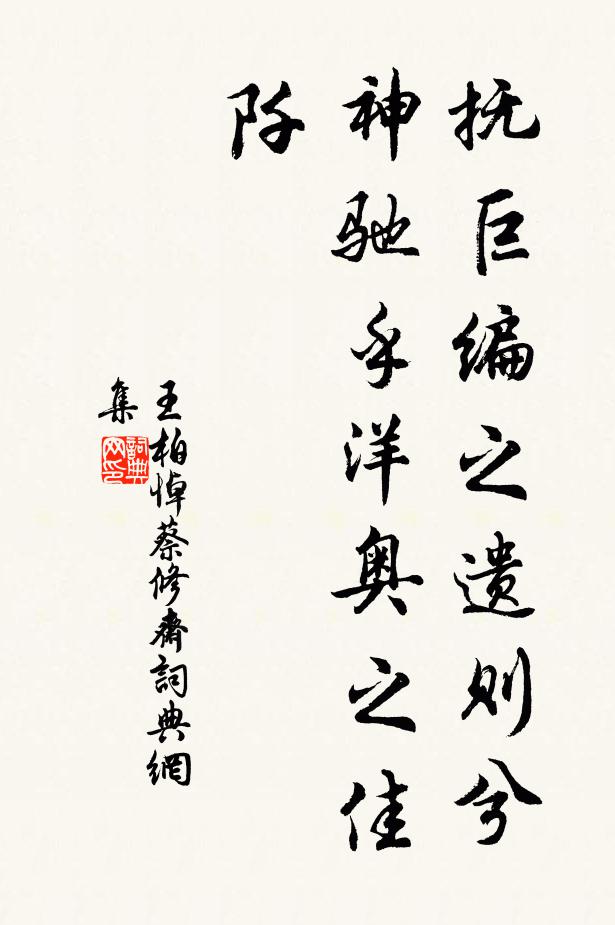 抚巨编之遗则兮
神驰乎洋奥之佳
阡
王柏悼蔡修斋詞典網
集
詞典网印